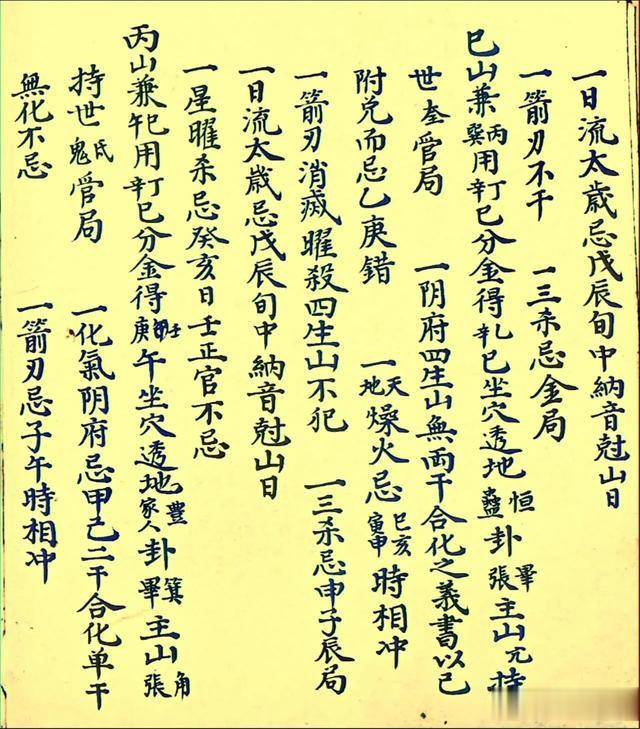 一日流太歲忌戊辰旬中納音尅山日
一箭刃不干　一三杀忌金局
巳山兼丙巽用辛丁巳分金得辛巳坐穴透地恒蠱卦畢張主山亢持
世奎管局　一阴府四生山無両干合化之義書以己
附兌而忌乙庚錯　一天地燥火忌巳亥寅申時相冲
一箭刃消滅曜殺四生山不犯　一三杀忌申子辰局
一日流太歲忌戊辰旬中納音尅山日
一星曜杀忌癸亥日壬正官不忌
丙山兼午巳用辛丁巳分金得壬庚午坐穴透地豐家人卦箕畢主山角張
持世氐鬼管局　一化氣阴府忌甲己二干合化单干
無化不忌　一箭刃忌子午時相冲